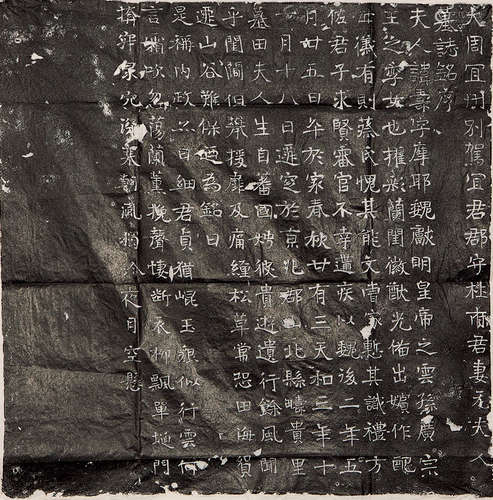 大周宜州別駕宜君郡守杜市君妻元夫人
墓誌銘序
夫人諱壽字摩耶魏獻明皇帝之雲孫廣宗
王之季女也擢彩蘭閨徽猷光備出嬪作配
母儀有則蔡氏愧其能文曹家慙其識禮方
彼君子求賢審官不幸遘疾以魏後二年五
月廿五日卒於家春秋廿有三天和三年十
一月十八日遷窆於京兆郡山北縣疇貴里
墓田夫人生自蕃國娉彼貴遊遺行餘風聞
乎閨閫但藥援靡及痛纏松草常恐田海貿
遷山谷難保迺為銘曰
是稱內政亦曰細君貞猶崐玉貌似行雲何
言忽蕩蘭薰挽聲悽斷衣柳飄單埏門
泉穴今夜月空